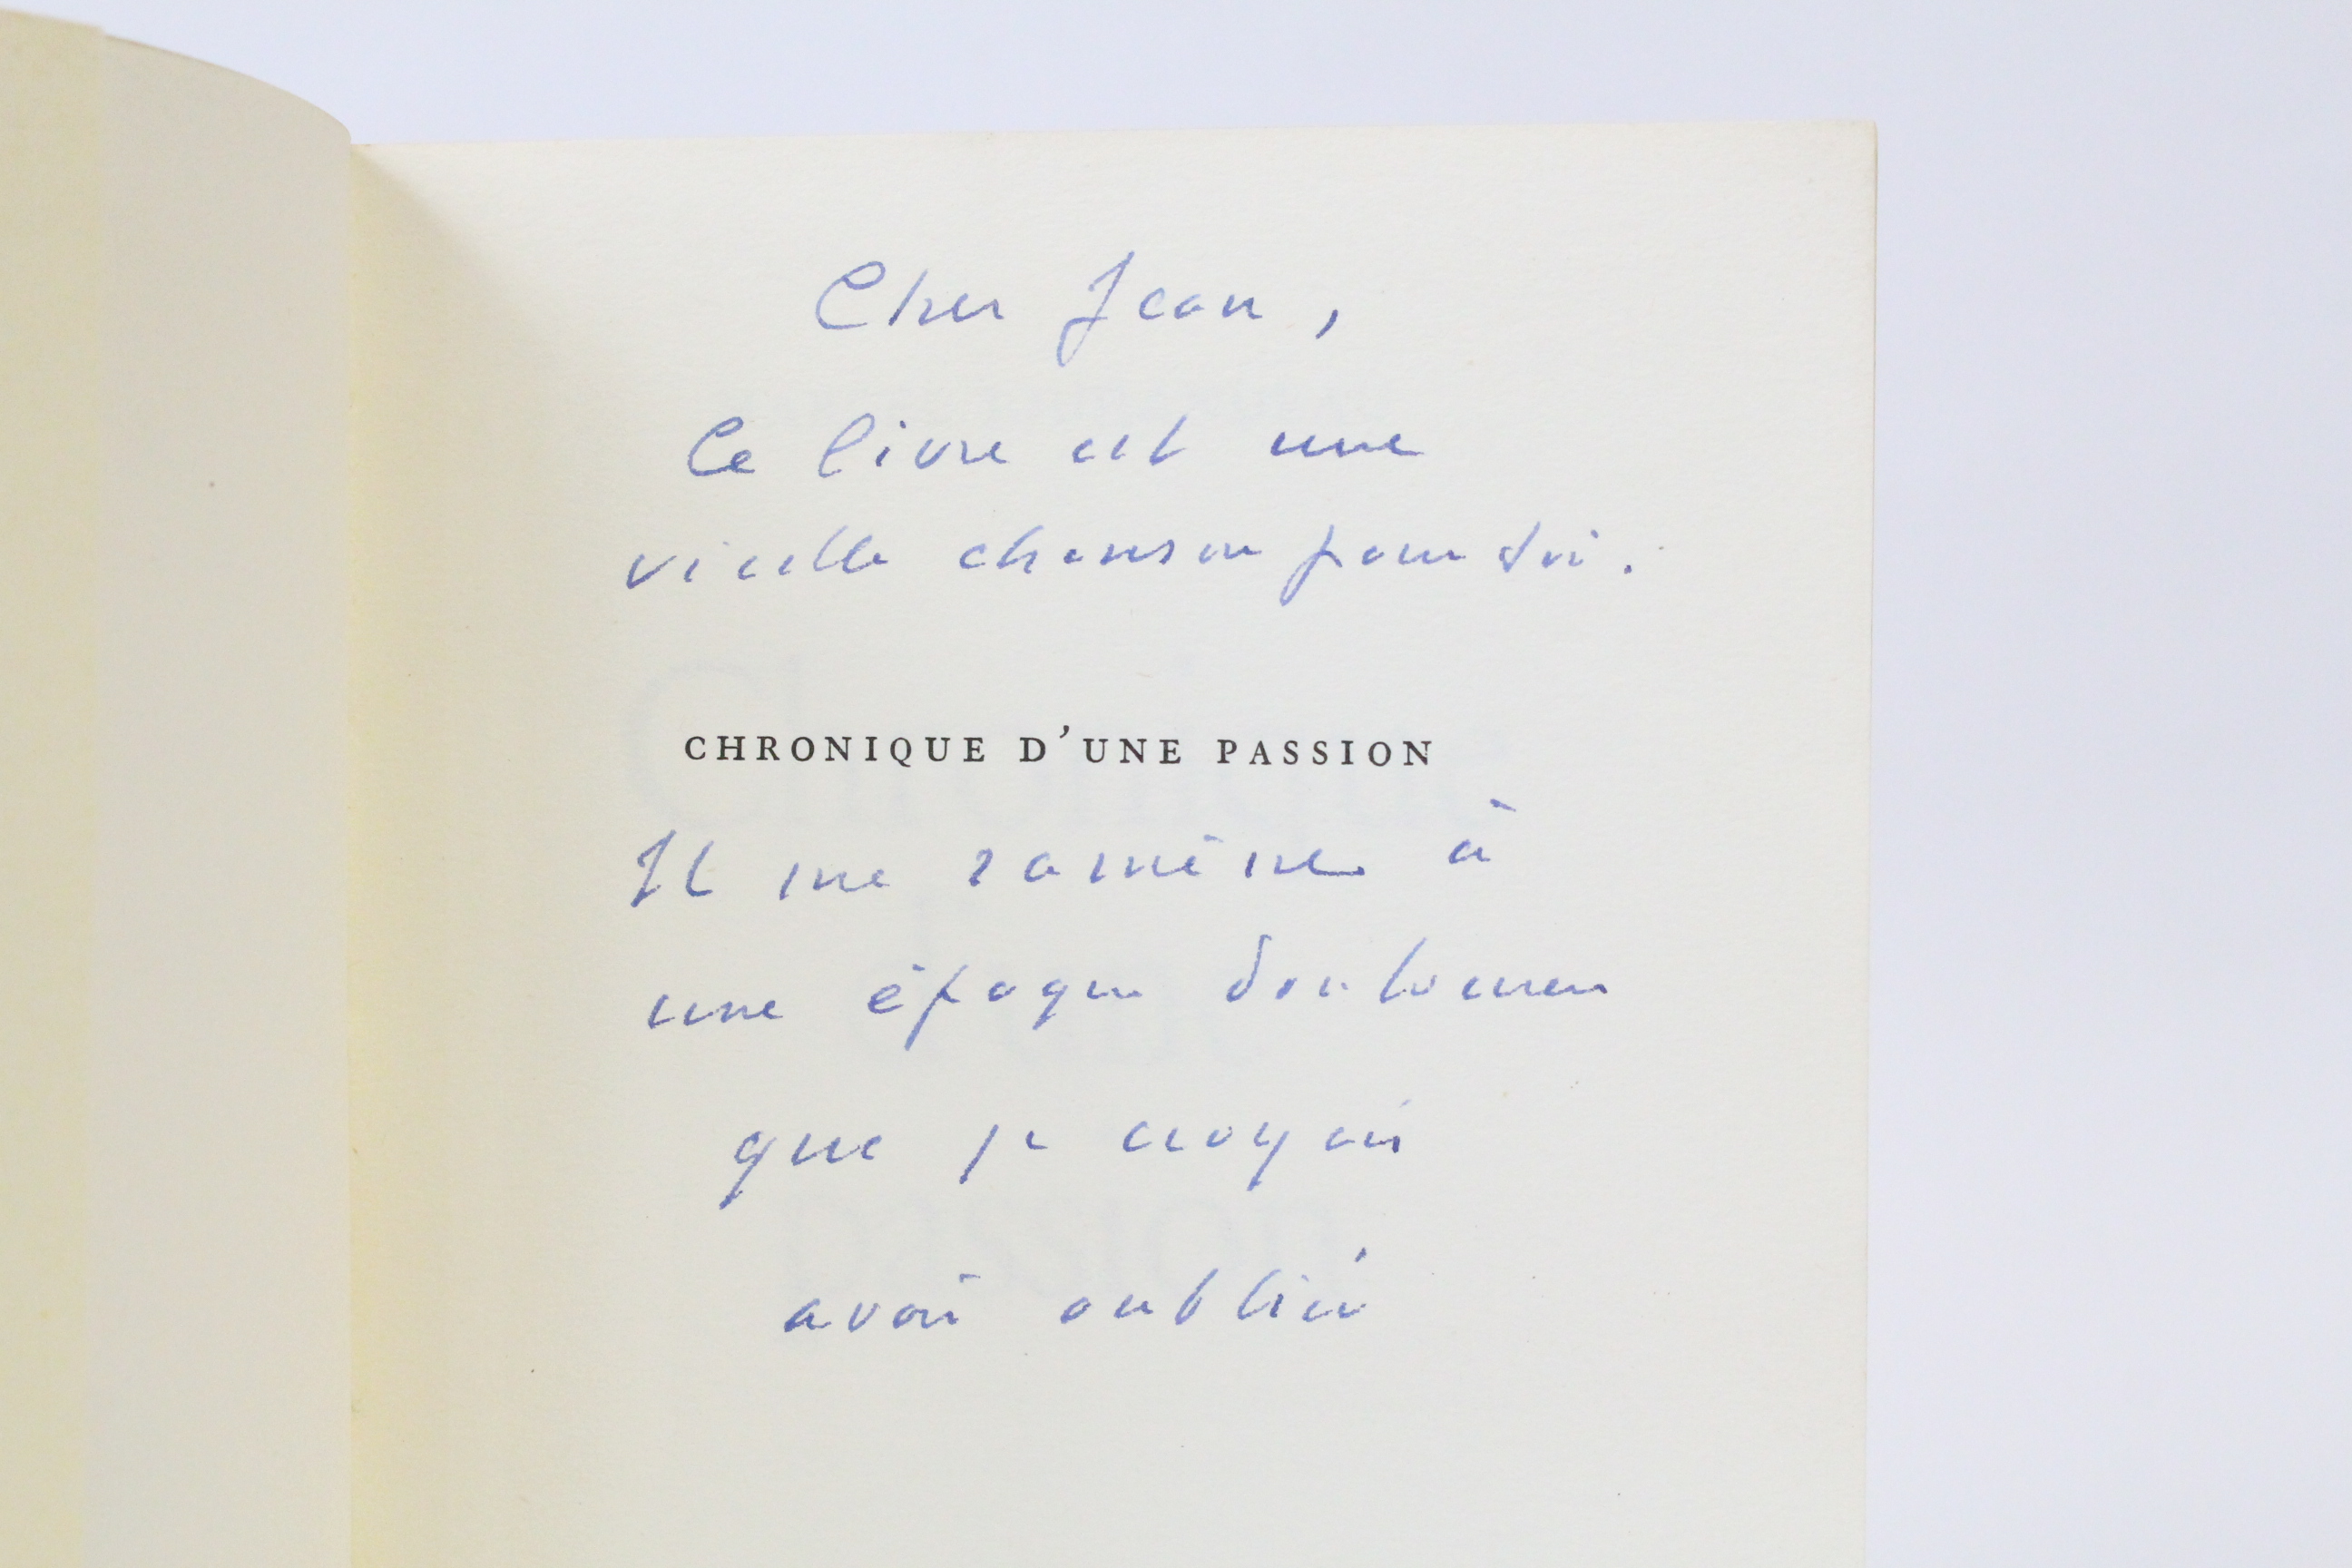 Cher Jean,
Ce livre est une
vieille chanson pour toi.
CHRONIQUE D'UNE PASSION
Il me ramène à
une époque douloureuse
que je croyais
avoir oubliée